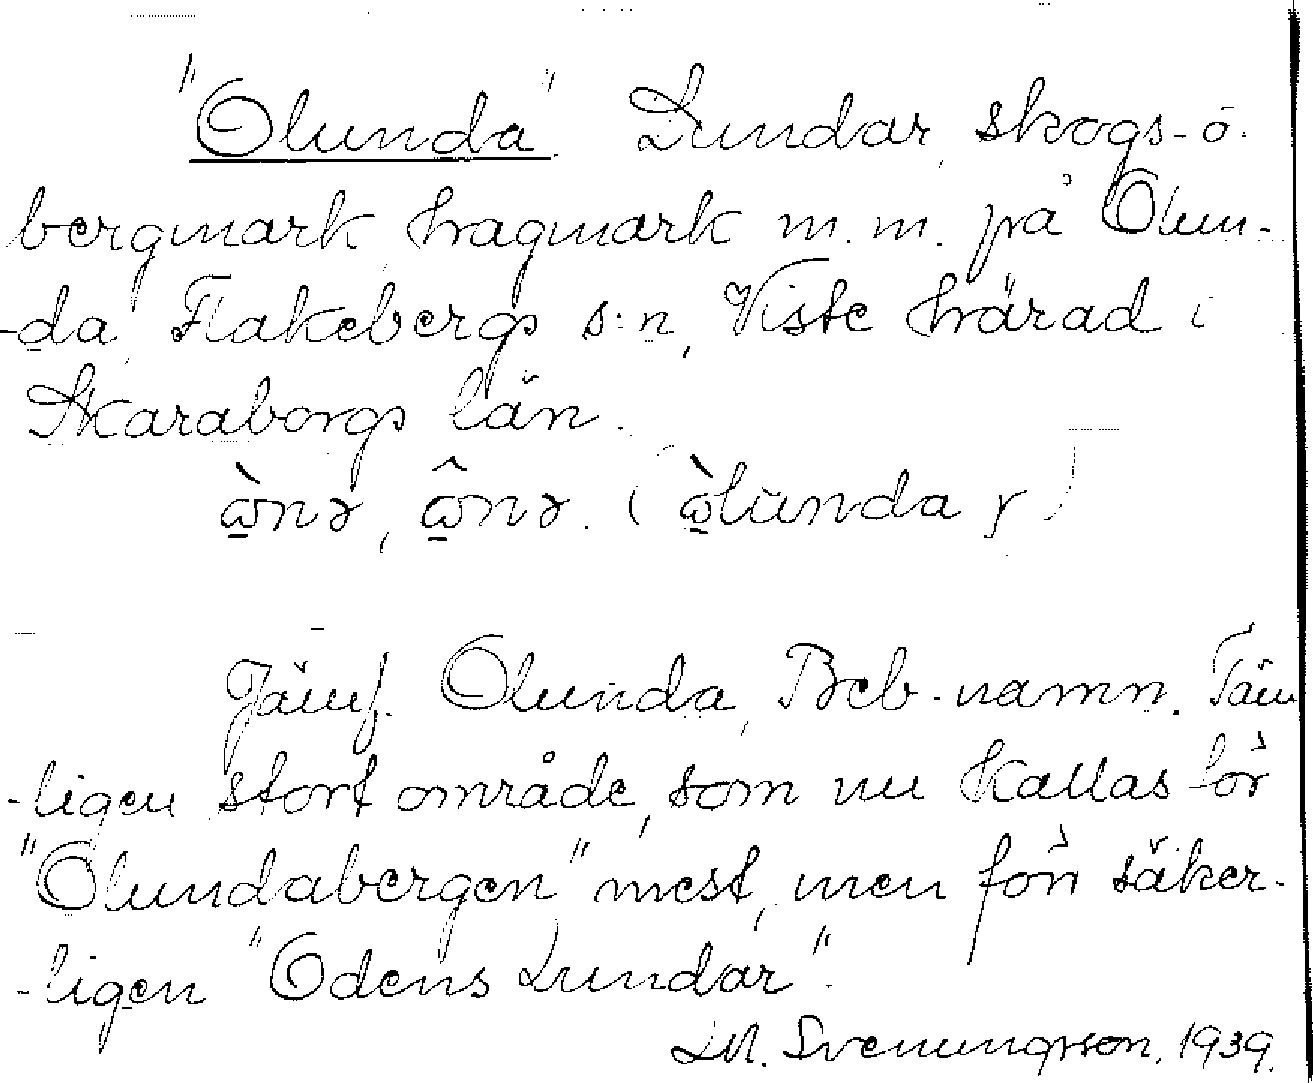 "Olunda" Lundar, skogs- o.
bergmark, hagmark m.m. på Olun-
-da, Flakebergs s:n, Viste härad i
Skaraborgs län.
Jämf. Olunda, Beb-namn. Täm
-ligen stort område, som nu kallas för
"Olundabergen" mest, men förr säker-
-ligen "Odens Lundar".
Svenungsson, 1939.